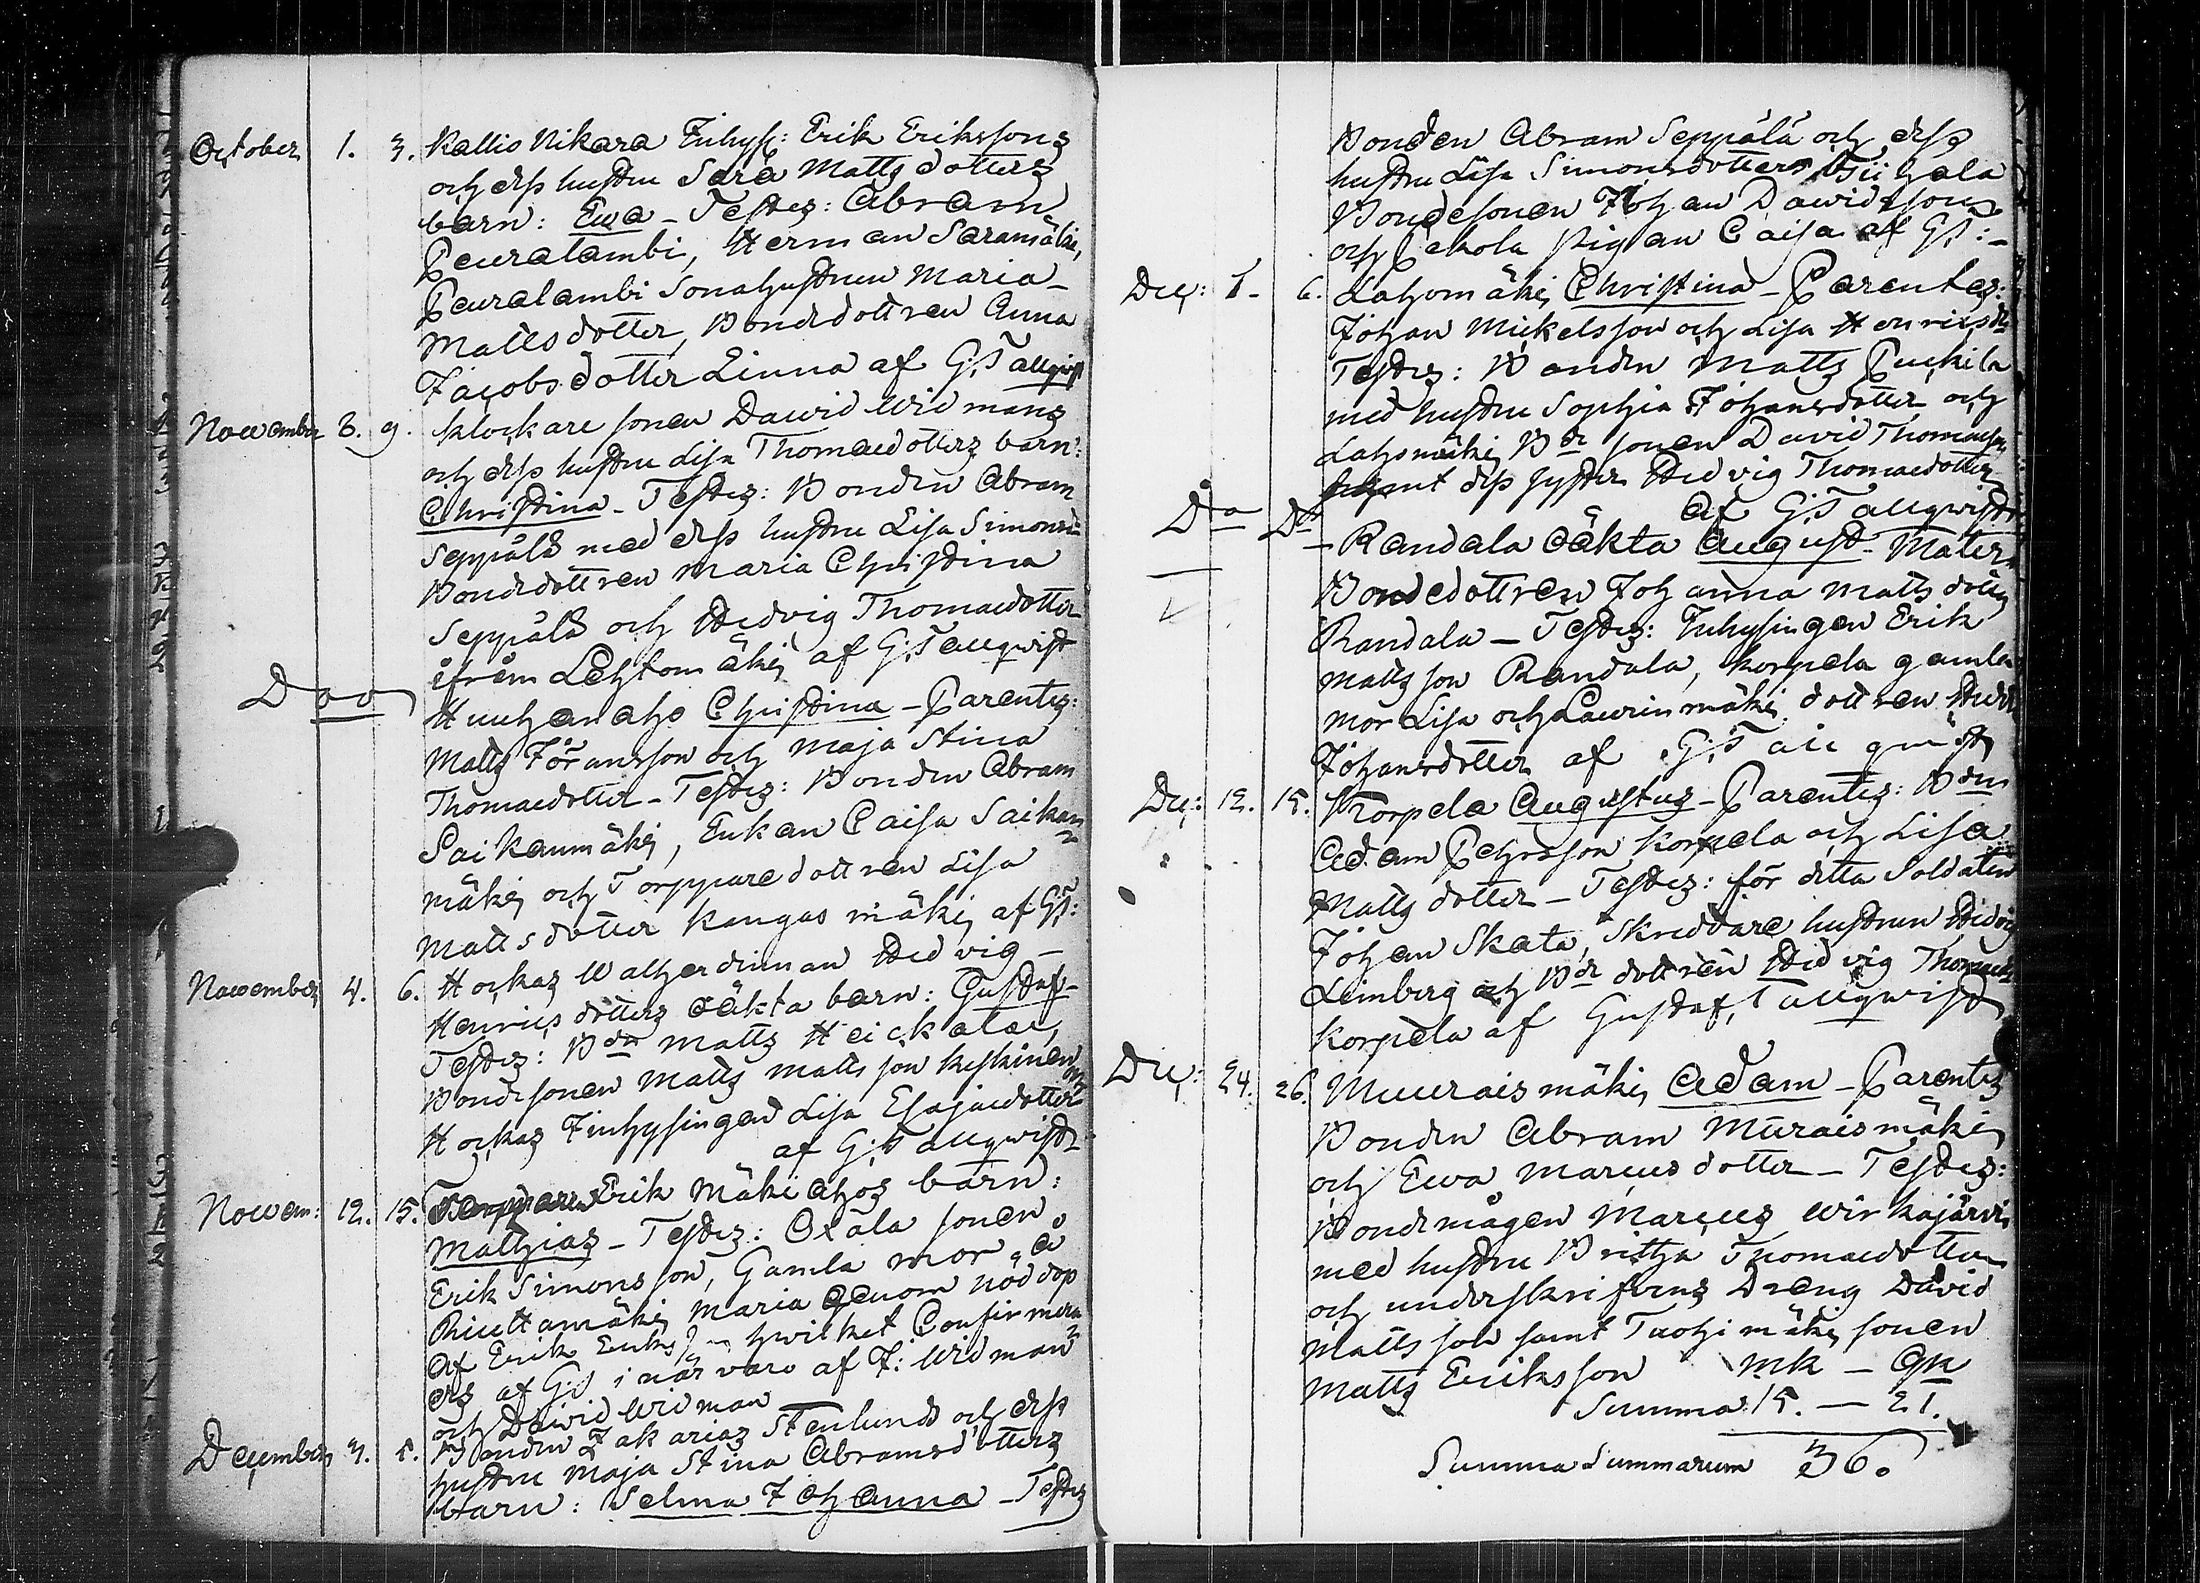 October 1. 3. Kallio Nikara Inhys: Erik Erikssons
och dess hustru Sara Mattsdotters
barn: Ewa - Testes: Abram
Peuralambi, Herman Saramäki,
Peuralambi Sonahustrun Maria
Mattsdotter, Bondedottren Anna
Jacobsdotter Linna af G:Tallqvist
November 8. 9. klockare sonen Dawid Widmans
och dess hustru Lisa Thomaedotters barn:
Christina - Testes: Bonden Abram
Seppälä med dess hustru Lisa Simonsd:
Bondedottren Maria Christina
Seppälä och Hedvig Thomaedotter
ifrån Lehtomäki af G:Tallqvist
Dao Huuhanaho Christina - Parentes:
Matts Göransson och Maja Stina
Thomaedotter - Testes: Bonden Abram
Saikanmäki, Enkan Caisa Saikan=
mäki och Torppare dottren Lisa
Mattsdotter Kangasmäki af GT:
November 4. 6. Hockas Walherdinnan Hedvig
Henricsdotters oäkta barn: Gustaf
Testes: Bdn Matts Heickalae,
Bondesonen Matts Mattsson Keskinen
Hockas Inhysingen Lisa Esajaedotter
af G:Tallqvist
Novem: 12. 15. Torpparen Erik Mäkiahos barn:
Mathias - Testes: Oxala sonen
Erik Simonsson, Gamla mor a
Riuttamäki Maria genom nöddop
af Erik Eriks hwilket Confirmera=
des af G:T i närvaro af J: Widman
och Dawid Widman
December 3. 5. Bonden Zakarias Stenlunds och dess
hustru Maja Stina Abramsdotters
barn: Selma Johanna - Testes
Bonden Abram Seppälä och dess
hustru Lisa Simonsdotter
Bondesonen Johan Dawidsson
och Pekola pigan Caisa af G:T:
Dec: 1. 6. Lahomäki Christina - Parentes:
Johan Mickelsson och Lisa Henricsdr
Testes: Bonden Matts Puckila
med hustru Sophia Johansdotter och
Lahomäki Bde sonen David Thomasson
samt dess syster Hedvig Thomaedotter
af G:Tallqvist
Dto Do Randala oäkta August - Mater:
Bondedottren Johanna Mattsdotter
Randala - Testes: Inhysingen Erik
Mattsson Randala, Korpela gamla
mor Lisa och Laurinmäki dottren
Johansdotter af G:Tallqvist
Dec: 12. 15. Korpela Augustus - Parentes: Bdn
Adam Pehrsson Korpela och Lisa
Mattsdotter - Testes: för detta Soldaten
Johan Skata, Skreddare hustrun Hedvig
Leinberg och Bde dottren Hedvig Thomaed
Korpela af Gustaf, Tallqvist
Dec: 24. 26. Muuraismäki Adam - Parentes
Bonden Abram Muraismäki
och Ewa Marcusdotter - Testes:
Bondemågen Marcus Wirkajärvi
med hustru Britha Thomaedotter
och underskrifvens Dreng David
Mattsson samt Tuohimäki sonen
Matts Eriksson mk - qk
Summa: 15. - 21.
Summa Summarum 36.